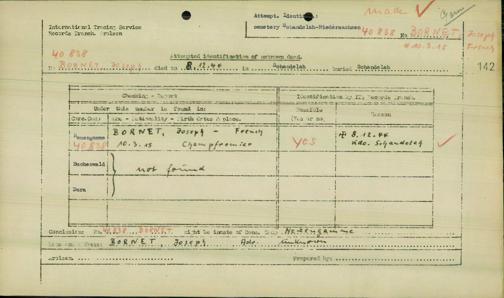 International Tracing Service
Records Branch. Arolsen
Attempt. Identif.:
cemetery Schandelah-Niedersachsen
made
40 838 BORNET, Joseph
No.
* 10.3.15 French
Attempted identification of unknown dead.
40 838
BORNET Joseph died on 8.12.44 in Schandelah Buried Schandelah
142
Checking - Report
Identification by ITS Records Branch.
Under this number is found in:
Possible
(Yes or no)
Reason
Conc.Camp
Name - Nationality - Birth Date & place.
Neuengamme
40838
BORNET, Joseph - French
10.3.15 Champfromier
yes
✠ 8.12.44
Kdo. Schandelah
Buchenwald
Dora
not found
Conclusion: No. 40838 BORNET might be inmate of Conc. Camp Neuengamme
BORNET, Joseph Adr. unknown
Arolsen,
Prepared by: